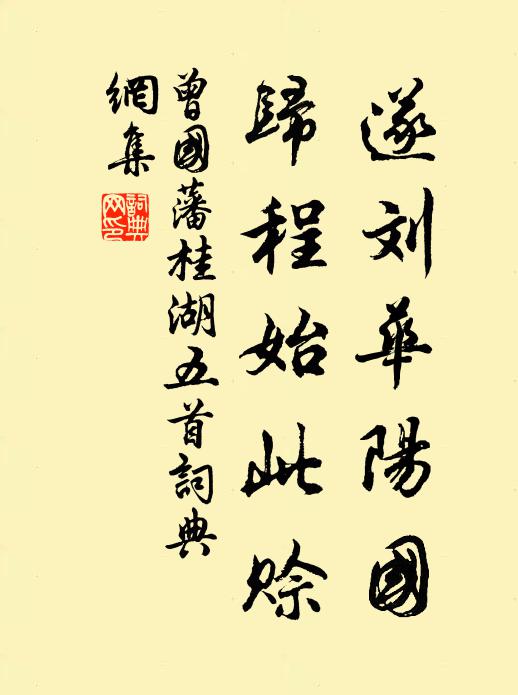 遂刘華陽國
歸程始此賒
曾國藩桂湖五首詞典
網集
詞典
网印